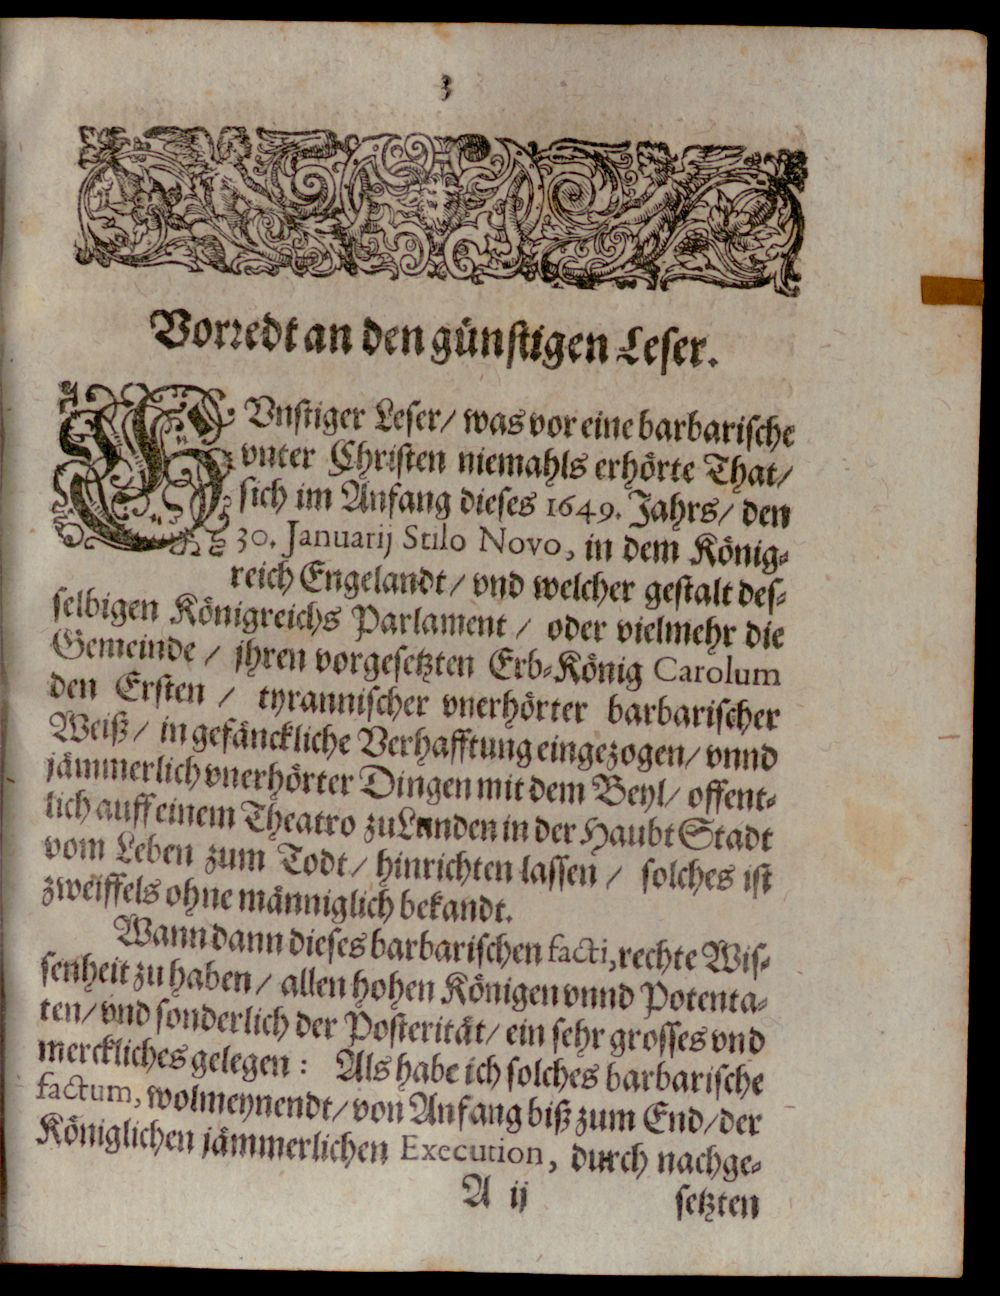 3
Vorredt an den günstigen Leser.
GVnstiger Leser/ was vor eine barbarische
vnter Christen niemahls erhörte That/
sich im Anfang dieses 1649. Jahrs/ den
30. Januarij Stilo Novo, in dem König-
reich Engelandt/ vnd welcher gestalt des-
selbigen Königreichs Parlament / oder vielmehr die
Gemeinde / jhren vorgesetzten Erb-König Carolum
den Ersten / tyrannischer vnerhörter barbarischer
Weiß/ in gefänckliche Verhafftung eingezogen/ vnnd
jämmerlich vnerhörter Dingen mit dem Beyl/ offent-
lich auff einem Theatro zu Lunden in der Haubt Stadt
vom Leben zum Todt/ hinrichten lassen / solches ist
zweiffels ohne männiglich bekandt.
Wann dann dieses barbarischen facti, rechte Wis-
senheit zu haben/ allen hohen Königen vnnd Potenta-
ten/ vnd sonderlich der Posterität/ ein sehr grosses vnd
merckliches gelegen: Als habe ich solches barbarische
factum, wolmeynendt/ von Anfang biß zum End/ der
Königlichen jämmerlichen Execution, durch nachge-
A ij setzten